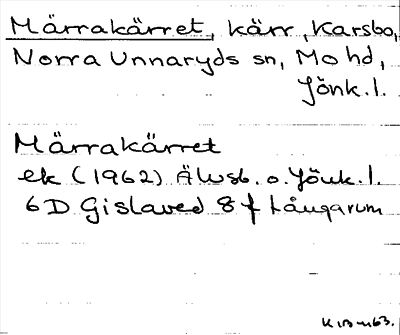 Märrakärret, kärr, Karsbo,
Norra Unnaryds sn, Mo hd,
Jönk.l.
Märrakärret
ek (1962) Älvsb. o. Jönk.l.
6D Gislaved 8f Långarum